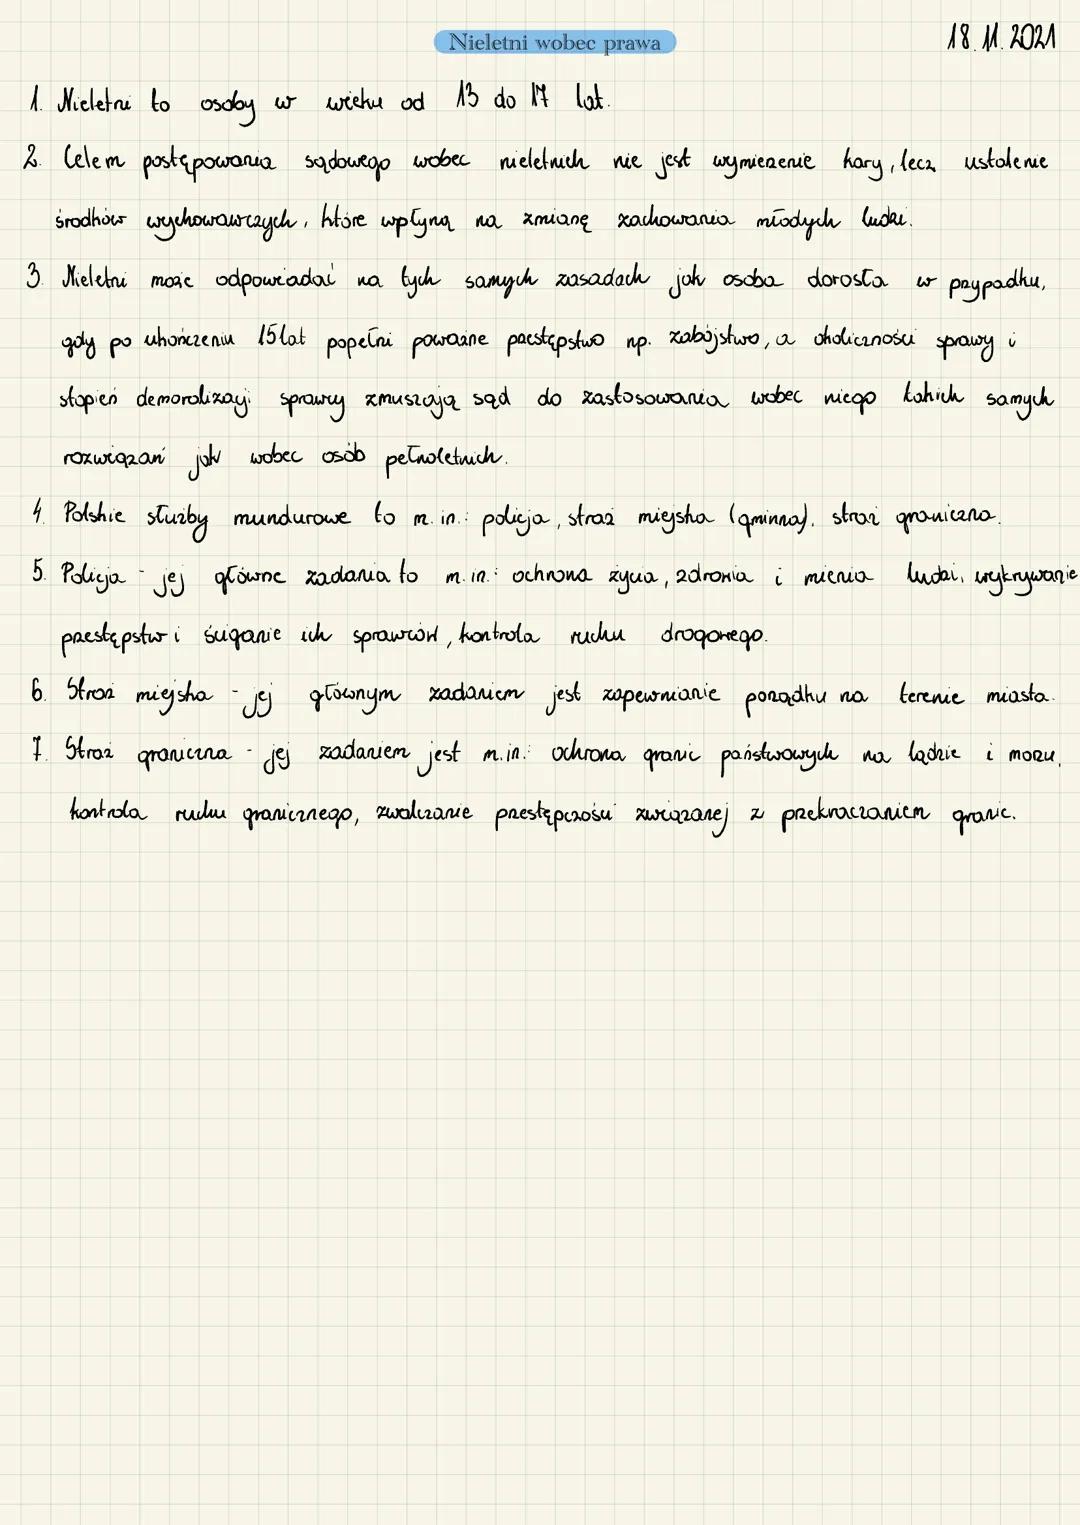 Nieletni wobec prawa
18.11.2021
1. Nieletni to osoby w wieku od 13 do 17 lat.
2. Celem postępowania sądowego wobec nieletnich nie jest wymierzenie kary, lecz ustalenie
środków wychowawczych, które wpłyną na zmianę zachowania młodych ludzi.
3. Nieletni może odpowiadać na tych samych zasadach jak osoba dorosła w przypadku,
gdy po ukończeniu 15 lat popełni poważne przestępstwo np. zabójstwo, a okoliczności sprawy i
stopień demoralizacji sprawcy zmuszają sąd do zastosowania wobec niego takich samych
rozwiązań jak wobec osób pełnoletnich.
4. Polskie służby mundurowe to m.in.: policja, straż miejska (gminna), straż graniczna.
5. Policja - jej główne zadania to m.in.: ochrona życia, zdrowia i mienia ludzi, wykrywanie
przestępstw i ściganie ich sprawców, kontrola ruchu drogowego.
6. Straż miejska - jej głównym zadaniem jest zapewnianie porządku na terenie miasta.
7. Straż graniczna - jej zadaniem jest m.in.: ochrona granic państwowych na lądzie i morzu,
kontrola ruchu granicznego, zwalczanie przestępczości związanej z przekraczaniem granic.